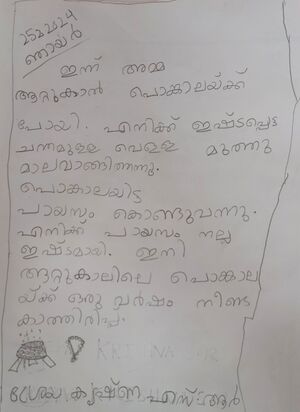 25 2 2024
ഞായർ
ഇന്ന് അമ്മ
ആറ്റുകാൽ പൊങ്കാലയ്ക്ക്
പോയി. എനിക്ക് ഇഷ്ടപ്പെട്ട
ചന്തമുള്ള വെള്ള മുത്തു
മാലവാങ്ങിത്തന്നു.
പൊങ്കാലയിട്ട
പായസവും കൊണ്ടുവന്നു.
എനിക്ക് പായസം നല്ല
ഇഷ്ടമായി. ഇനി
ആറ്റുകാലിലെ പൊങ്കാല
യ്ക്ക് ഒരു വർഷം നീണ്ട
കാത്തിരിപ്പ്.
കൃഷ്ണ എസ് ആർ